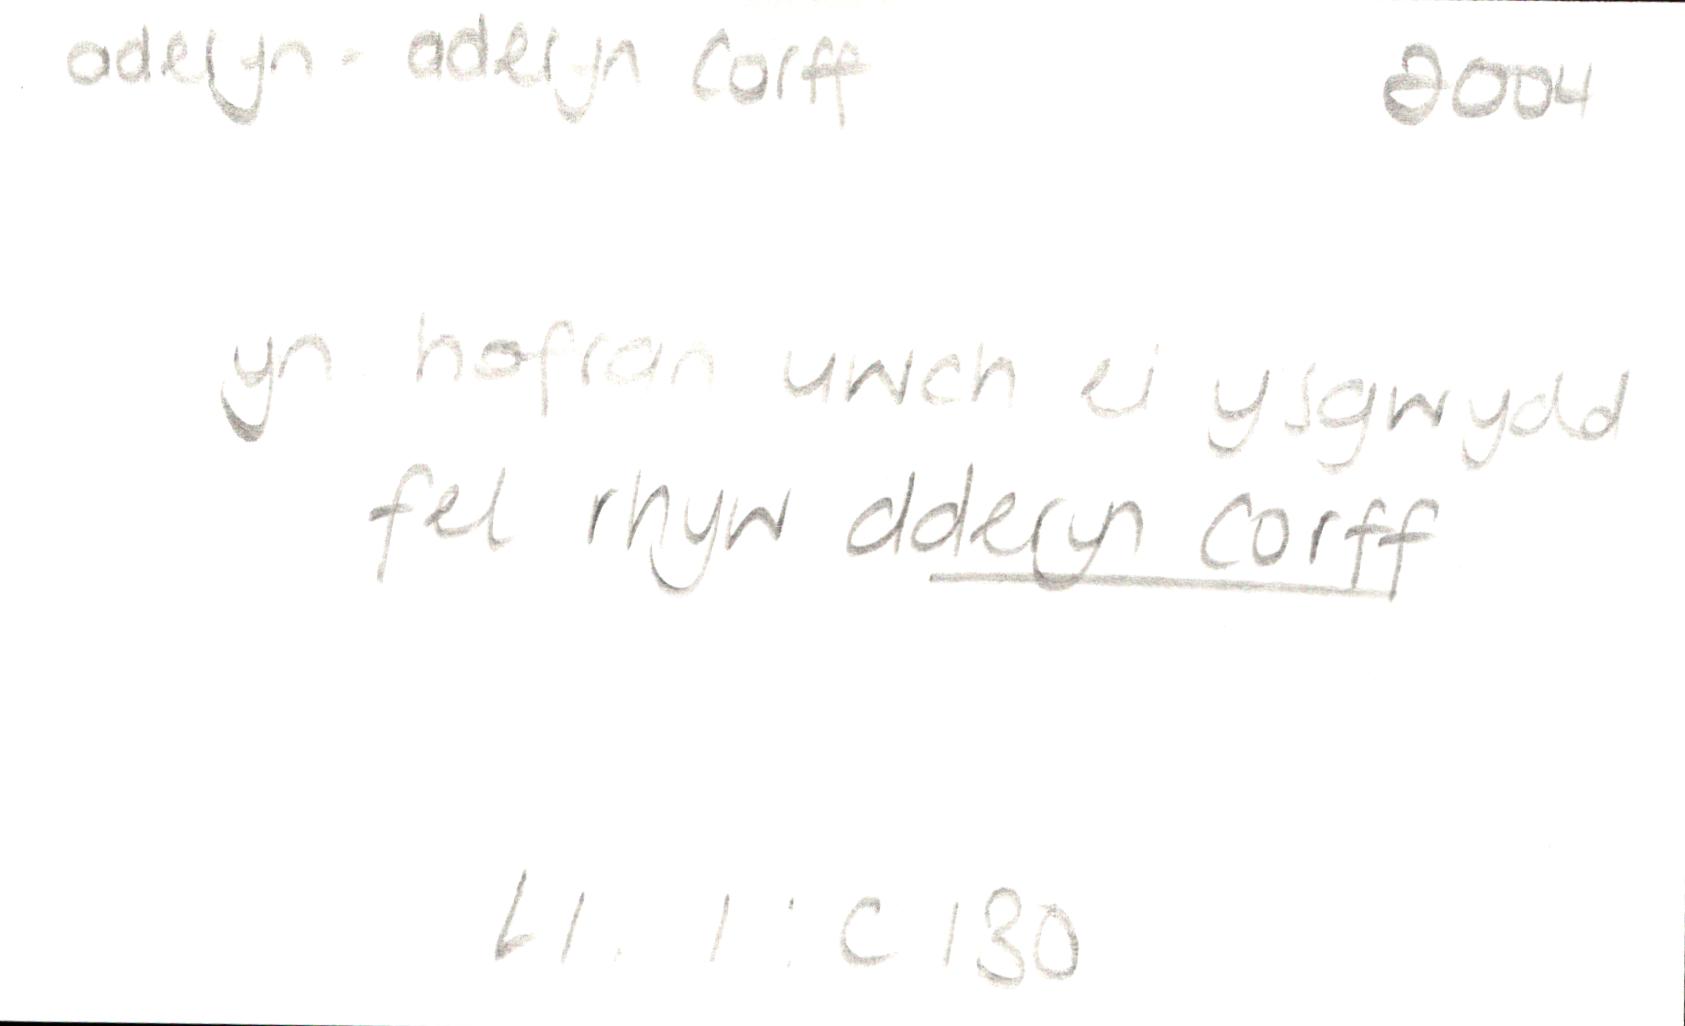 aderyn - aderyn corff 2004
yn hofran uwch ei ysgwydd
fel rhyw dderyn corff
Ll. 1 : C 130